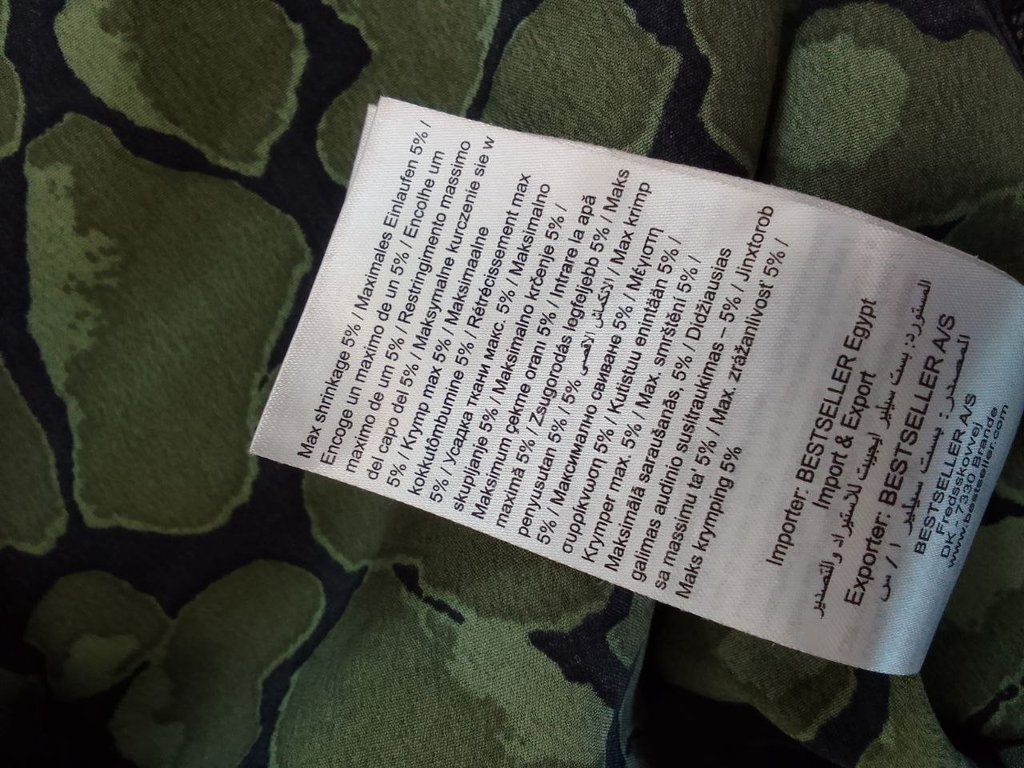 Max shrinkage 5% / Maximales Einlaufen 5% /
Encoge un maximo de un 5% / Encolhe um
maximo de um 5% / Restringimento massimo
del capo del 5% / Maksymalne kurczenie sie w
5% / Krymp max 5% / Maksimaalne
kokkutõmbumine 5% / Rétrécissement max
5% / Усадка ткани макс. 5% / Maksimalno
skupljanje 5% / Maksimalno krčenje 5% /
Maksimum çekme orani 5% / Intrare la apă
maximă 5% / Zsugorodás legfeljebb 5% / Maks
penyusutan 5% / 5% الانكماش الاقصى / Max krimp
5% / Максимално свиване 5% / Μέγιστη
συρρίκνωση 5% / Kutistuu enintään 5% /
Krymper max. 5% / Max. smrštění 5% /
Maksimālā saraušanās, 5% / Didžiausias
galimas audinio susitraukimas – 5% / Jinxtorob
sa massimu ta' 5% / Max. zrážanlivosť 5% /
Maks krymping 5%
Importer: BESTSELLER Egypt
Import & Export
المستورد: بست سيلير ايجيبت للاستيراد والتصدير
Exporter: BESTSELLER A/S
المصدر: بست سيلير ا / س
BESTSELLER A/S
Fredsskovvej
DK - 7330 Brande
www.bestseller.com